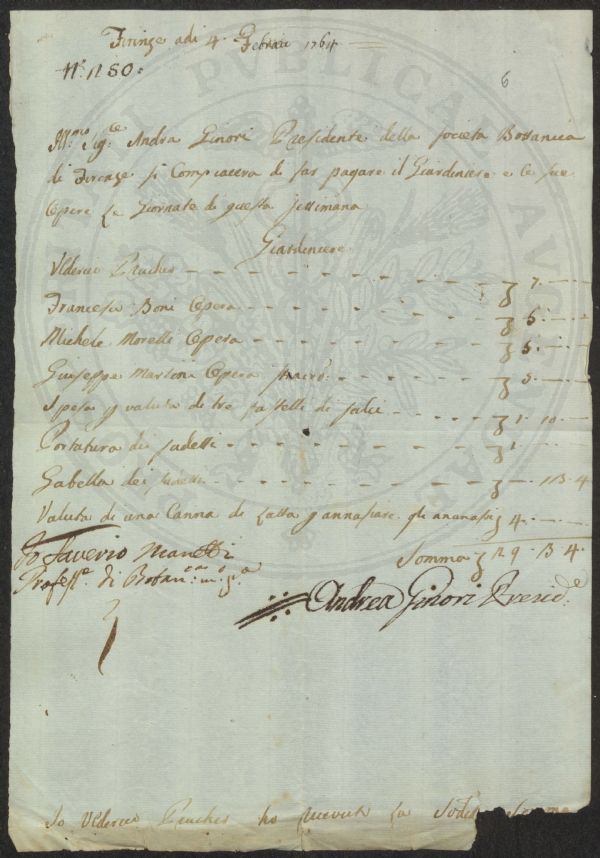 Firenze adi 4. Febraio 1764
N.º 150:
6
Ill:mo Sig:re Andrea Ginori Presidente della società Bottanica
di Firenze si Compiacerà di far pagare il Giardiniere e le sue
Opere Le Giornate di questa settimana
Giardiniere
Ulderico Prucher 7.
Francesco Boni Opera 5.
Michele Morelli Opera 5.
Giuseppe Martini Opera 5.
Spesa p valuta di tre fastelli di salci 1. 10
Portatura dei sudetti 1.
Gabella dei sudetti 13. 4
Valuta di una Canna di Latta p annafiare gli ananassi 4.
Io Saverio Manetti
Profess:e di Botan:ca
Somma 29. 13. 4.
Andrea Ginori Presid:e
Io Ulderico Prucher ho ricevuto La Sodetta Somma
PUBLICAE